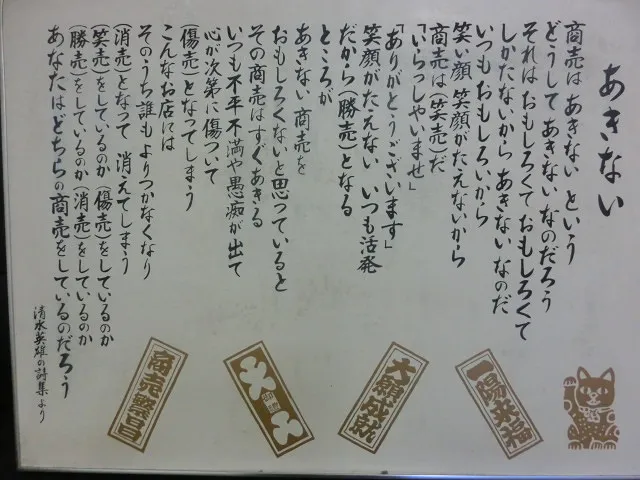 あきない
商売は あきない という
どうして あきない なのだろう
それは おもしろくて おもしろくて
しかたないから あきない なのだ
いつも おもしろいから
笑い顔 笑顔がたえないから
商売は(笑売)だ
「いらっしゃいませ」
「ありがとうございます」
笑顔がたえない いつも活発
だから(勝売)となる
ところが
あきない 商売を
おもしろくないと思っていると
その商売はすぐあきる
いつも不平不満や愚痴が出て
心が次第に傷ついて
(傷売)となってしまう
こんなお店には
そのうち誰もよりつかなくなり
(消売)となって 消えてしまう
(笑売)をしているのか (傷売)をしているのか
(勝売)をしているのか (消売)をしているのか
あなたはどちらの商売をしているのだろう
清水英雄の詩集より
一陽来福
大願成就
商売繁昌